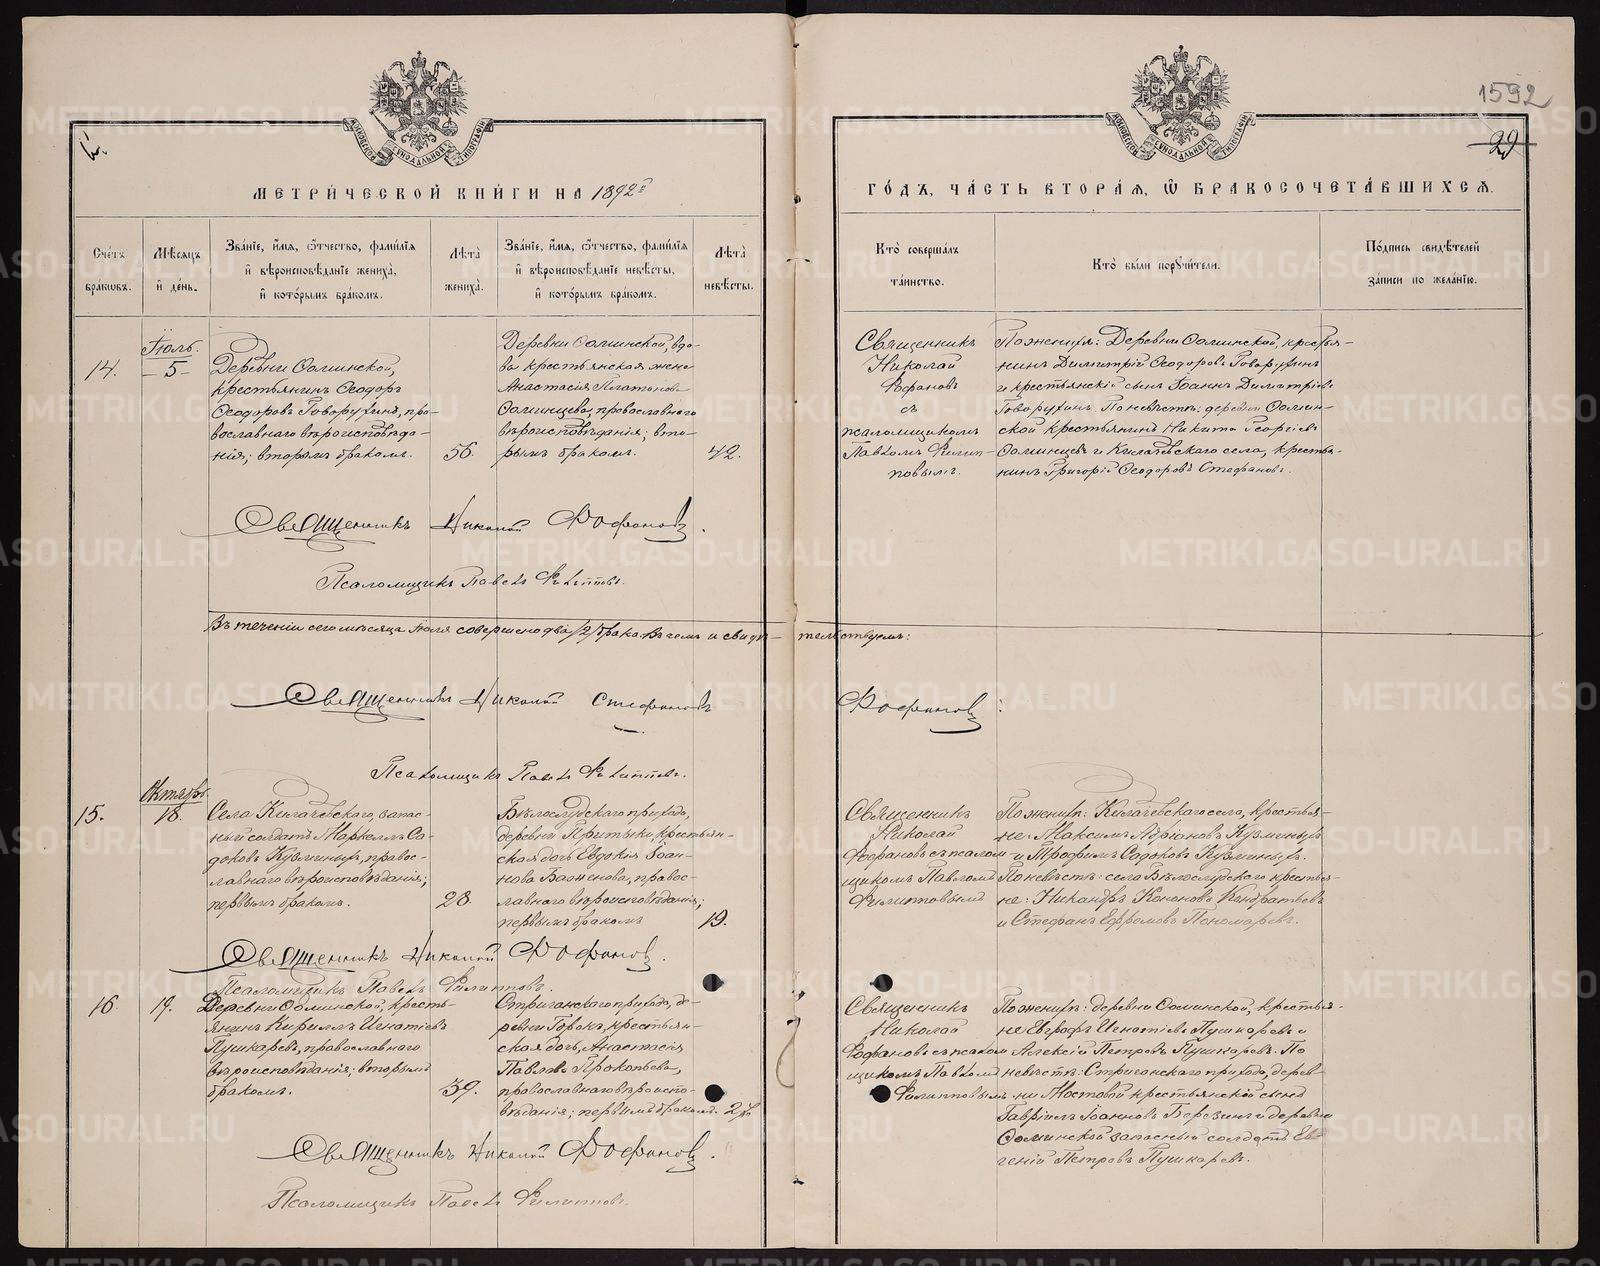 1592
29
МОСКОВСКОЙ СѴНОДАЛЬНОЙ ТИПОГРАФІИ
МОСКОВСКОЙ СѴНОДАЛЬНОЙ ТИПОГРАФІИ
МЕТРИ́ЧЕСКОЙ КНИ́ГИ НА 1892
ГО́ДЪ, ЧА́СТЬ ВТОРА́Я, Ѽ БРАКОСОЧЕТА́ВШИХСЯ.
Сче́тъ бра́кѡвъ.
Мѣ́сяцъ и҆ де́нь.
Зва́нїе, и҆́мя, ѻ҆́тчество, фами́лїя
и҆ вѣроисповѣ́данїе жениха̀,
и҆ кото́рымъ бра́комъ.
Лѣта̀ жениха̀.
Зва́нїе, и҆́мя, ѻ҆́тчество, фами́лїя
и҆ вѣроисповѣ́данїе невѣ́сты,
и҆ кото́рымъ бра́комъ.
Лѣта̀ невѣ́сты.
Кто̀ соверша́лъ
та́инство.
Кто̀ бы́ли порꙋчи́тели.
По́дпись свидѣ́телей
за́писи по жела́нїю.
14.
Іюль.
5
Деревни Соминской,
крестьянинъ Ѳеодоръ
Ѳеодоровъ Говорухинъ, пра-
вославнаго вѣроисповѣда-
нія; вторымъ бракомъ.
56.
Деревни Соминской, вдо-
ва крестьянская жена
Анастасія Платонова
Соминцева, православнаго
вѣроисповѣданія; вто-
рымъ бракомъ.
42.
Священникъ
Николай
Фофановъ
съ
псаломщикомъ
Павломъ Филип-
повымъ.
По женихѣ: Деревни Соминской, крестья-
нинъ Димитрій Ѳеодоровъ Говорухинъ
и крестьянскій сынъ Іоаннъ Димитріевъ
Говорухинъ. По невѣстѣ: деревни Сомин-
ской крестьянинъ Никита Георгіевъ
Соминцевъ и Килачевскаго села, крестья-
нинъ Григорій Ѳеодоровъ Стефановъ.
Священникъ Николай Фофановъ.
Псаломщикъ Павелъ Филипповъ.
Въ теченіи сего мѣсяца Іюля совершено два /2/ брака. Въ чемъ и свидѣтельствуемъ:
Священникъ Николай Стефановъ Фофановъ:
Псаломщикъ Павелъ Филипповъ.
15.
Октябрь.
18.
Села Килачевскаго, запас-
ный солдатъ Маркеллъ Са-
доковъ Кузминыхъ, правос-
лавнаго вѣроисповѣданія;
первымъ бракомъ.
28.
Бѣлослудскаго прихода,
деревни Притыки, крестьян-
ская дочь Евдокія Іоан-
нова Баженова, правос-
лавнаго вѣроисповѣданія;
первымъ бракомъ
19.
Священникъ
Николай
Фофановъ съ псалом-
щикомъ Павломъ
Филипповымъ
По женихѣ: Килачевскаго села, крестья-
не: Максимъ Адріановъ Кузминыхъ
и Трофимъ Садоковъ Кузминыхъ.
По невѣстѣ: села Бѣлослудскаго крестья-
не: Никандръ Кононовъ Кондратьевъ
и Стефанъ Ефремовъ Пономаревъ.
Священникъ Николай Фофановъ.
Псаломщикъ Павелъ Филипповъ.
16.
19.
Деревни Соминской, кресть-
янинъ Кириллъ Игнатіевъ
Пушкаревъ, православнаго
вѣроисповѣданія; вторымъ
бракомъ.
39.
Стриганскаго прихода, де-
ревни Горокъ, крестьян-
ская дочь, Анастасія
Павлова Прокопьева,
православнаго вѣроиспо-
вѣданія; первымъ бракомъ.
Священникъ
Николай
Фофановъ съ псалом
щикомъ Павломъ
Филипповымъ
По женихѣ: деревни Соминской, крестья-
не Евграфъ Игнатіевъ Пушкаревъ и
Алексій Петровъ Пушкаревъ. По
невѣстѣ: Стриганскаго прихода, дерев-
ни Мостовой крестьянской сынъ
Гавріилъ Іоанновъ Березинъ и деревни
Соминской запасный солдатъ Ев-
геній Петровъ Пушкаревъ.
Священникъ Николай Фофановъ.
Псаломщикъ Павелъ Филипповъ.
METRIKI.GASO-URAL.RU